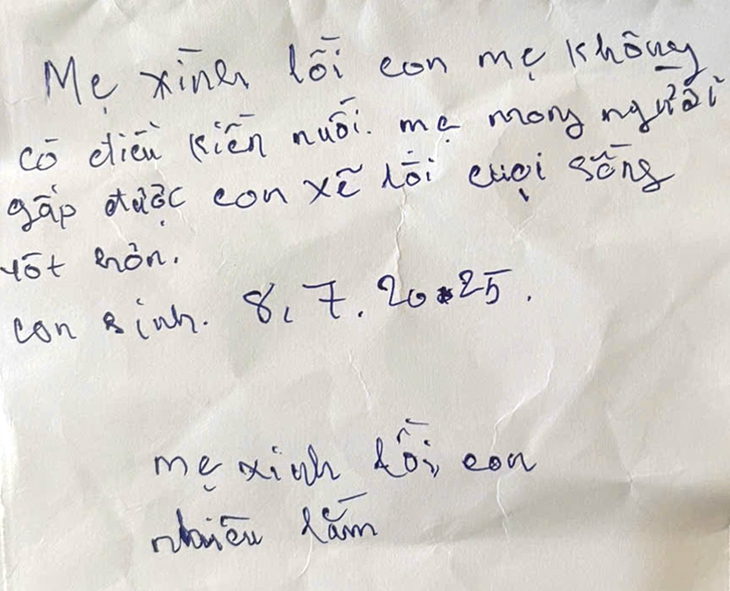 Mẹ xình lỗi con mẹ không
có điều kiến nuối. mẹ mong người
gặp được con xẽ lối cuọi sống
tốt hơn.
con sinh. 8, 7. 2025.
mẹ xinh lỗi, con
nhiều lắm